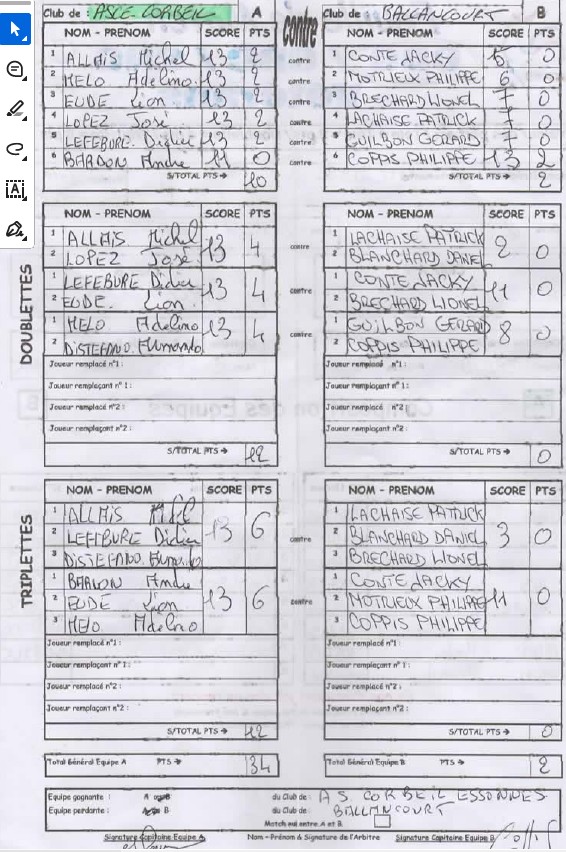 Club de : ASCE. CORBEIL A contre Club de : BALLANCOURT B
NOM - PRENOM SCORE PTS NOM - PRENOM SCORE PTS
1 ALLAIS Michel 13 2 contre 1 CONTE JACKY 5 0
2 MELO Adelino 13 2 contre 2 MOTRIEUX PHILIPPE 6 0
3 EUDE Lion 13 2 contre 3 BRECHARD LIONEL 7 0
4 LOPEZ José 13 2 contre 4 LACHAISE PATRICK 7 0
5 LEFEBURE. Didier 13 2 contre 5 GUILBON GERARD 7 0
6 BARDON Andre 11 0 contre 6 COPPIS PHILIPPE 13 2
S/TOTAL PTS → 10 S/TOTAL PTS → 2
DOUBLETTES
NOM - PRENOM SCORE PTS NOM - PRENOM SCORE PTS
1 ALLAIS Michel 13 4 contre 1 LACHAISE PATRICK 2 0
2 LOPEZ José 2 BLANCHARD DANIEL
1 LEFEBURE Didier 13 4 contre 1 CONTE JACKY 11 0
2 EUDE. Lion 2 BRECHARD LIONEL
1 MELO Adelino 13 4 contre 1 GUILBON GERARD 8 0
2 DISTEFANO. 2 COPPIS PHILIPPE
Joueur remplacé n°1 : Joueur remplacé n°1 :
Joueur remplaçant n° 1 : Joueur remplaçant n° 1 :
Joueur remplacé n°2 : Joueur remplacé n°2 :
Joueur remplaçant n°2 : Joueur remplaçant n°2 :
S/TOTAL PTS → 12 S/TOTAL PTS → 0
TRIPLETTES
NOM - PRENOM SCORE PTS NOM - PRENOM SCORE PTS
1 ALLAIS 13 6 contre 1 LACHAISE PATRICK 3 0
2 LEFEBURE Didier 2 BLANCHARD DANIEL
3 DISTEFANO. 3 BRECHARD LIONEL
1 BARDON Andre 13 6 contre 1 CONTE JACKY 11 0
2 EUDE Lion 2 MOTRIEUX PHILIPPE
3 MELO Adelino 3 COPPIS PHILIPPE
Joueur remplacé n°1 : Joueur remplacé n°1 :
Joueur remplaçant n° 1 : Joueur remplaçant n° 1 :
Joueur remplacé n°2 : Joueur remplacé n°2 :
Joueur remplaçant n°2 : Joueur remplaçant n°2 :
S/TOTAL PTS → 12 S/TOTAL PTS → 0
Total Général Equipe A PTS → 34 Total Général Equipe B PTS → 2
Equipe gagnante : A du Club de : A S CORBEIL ESSONNES
Equipe perdante : B du Club de : BALLANCOURT
Match nul entre A et B
Signature Capitaine Equipe A Nom - Prénom & Signature de l'Arbitre Signature Capitaine Equipe B